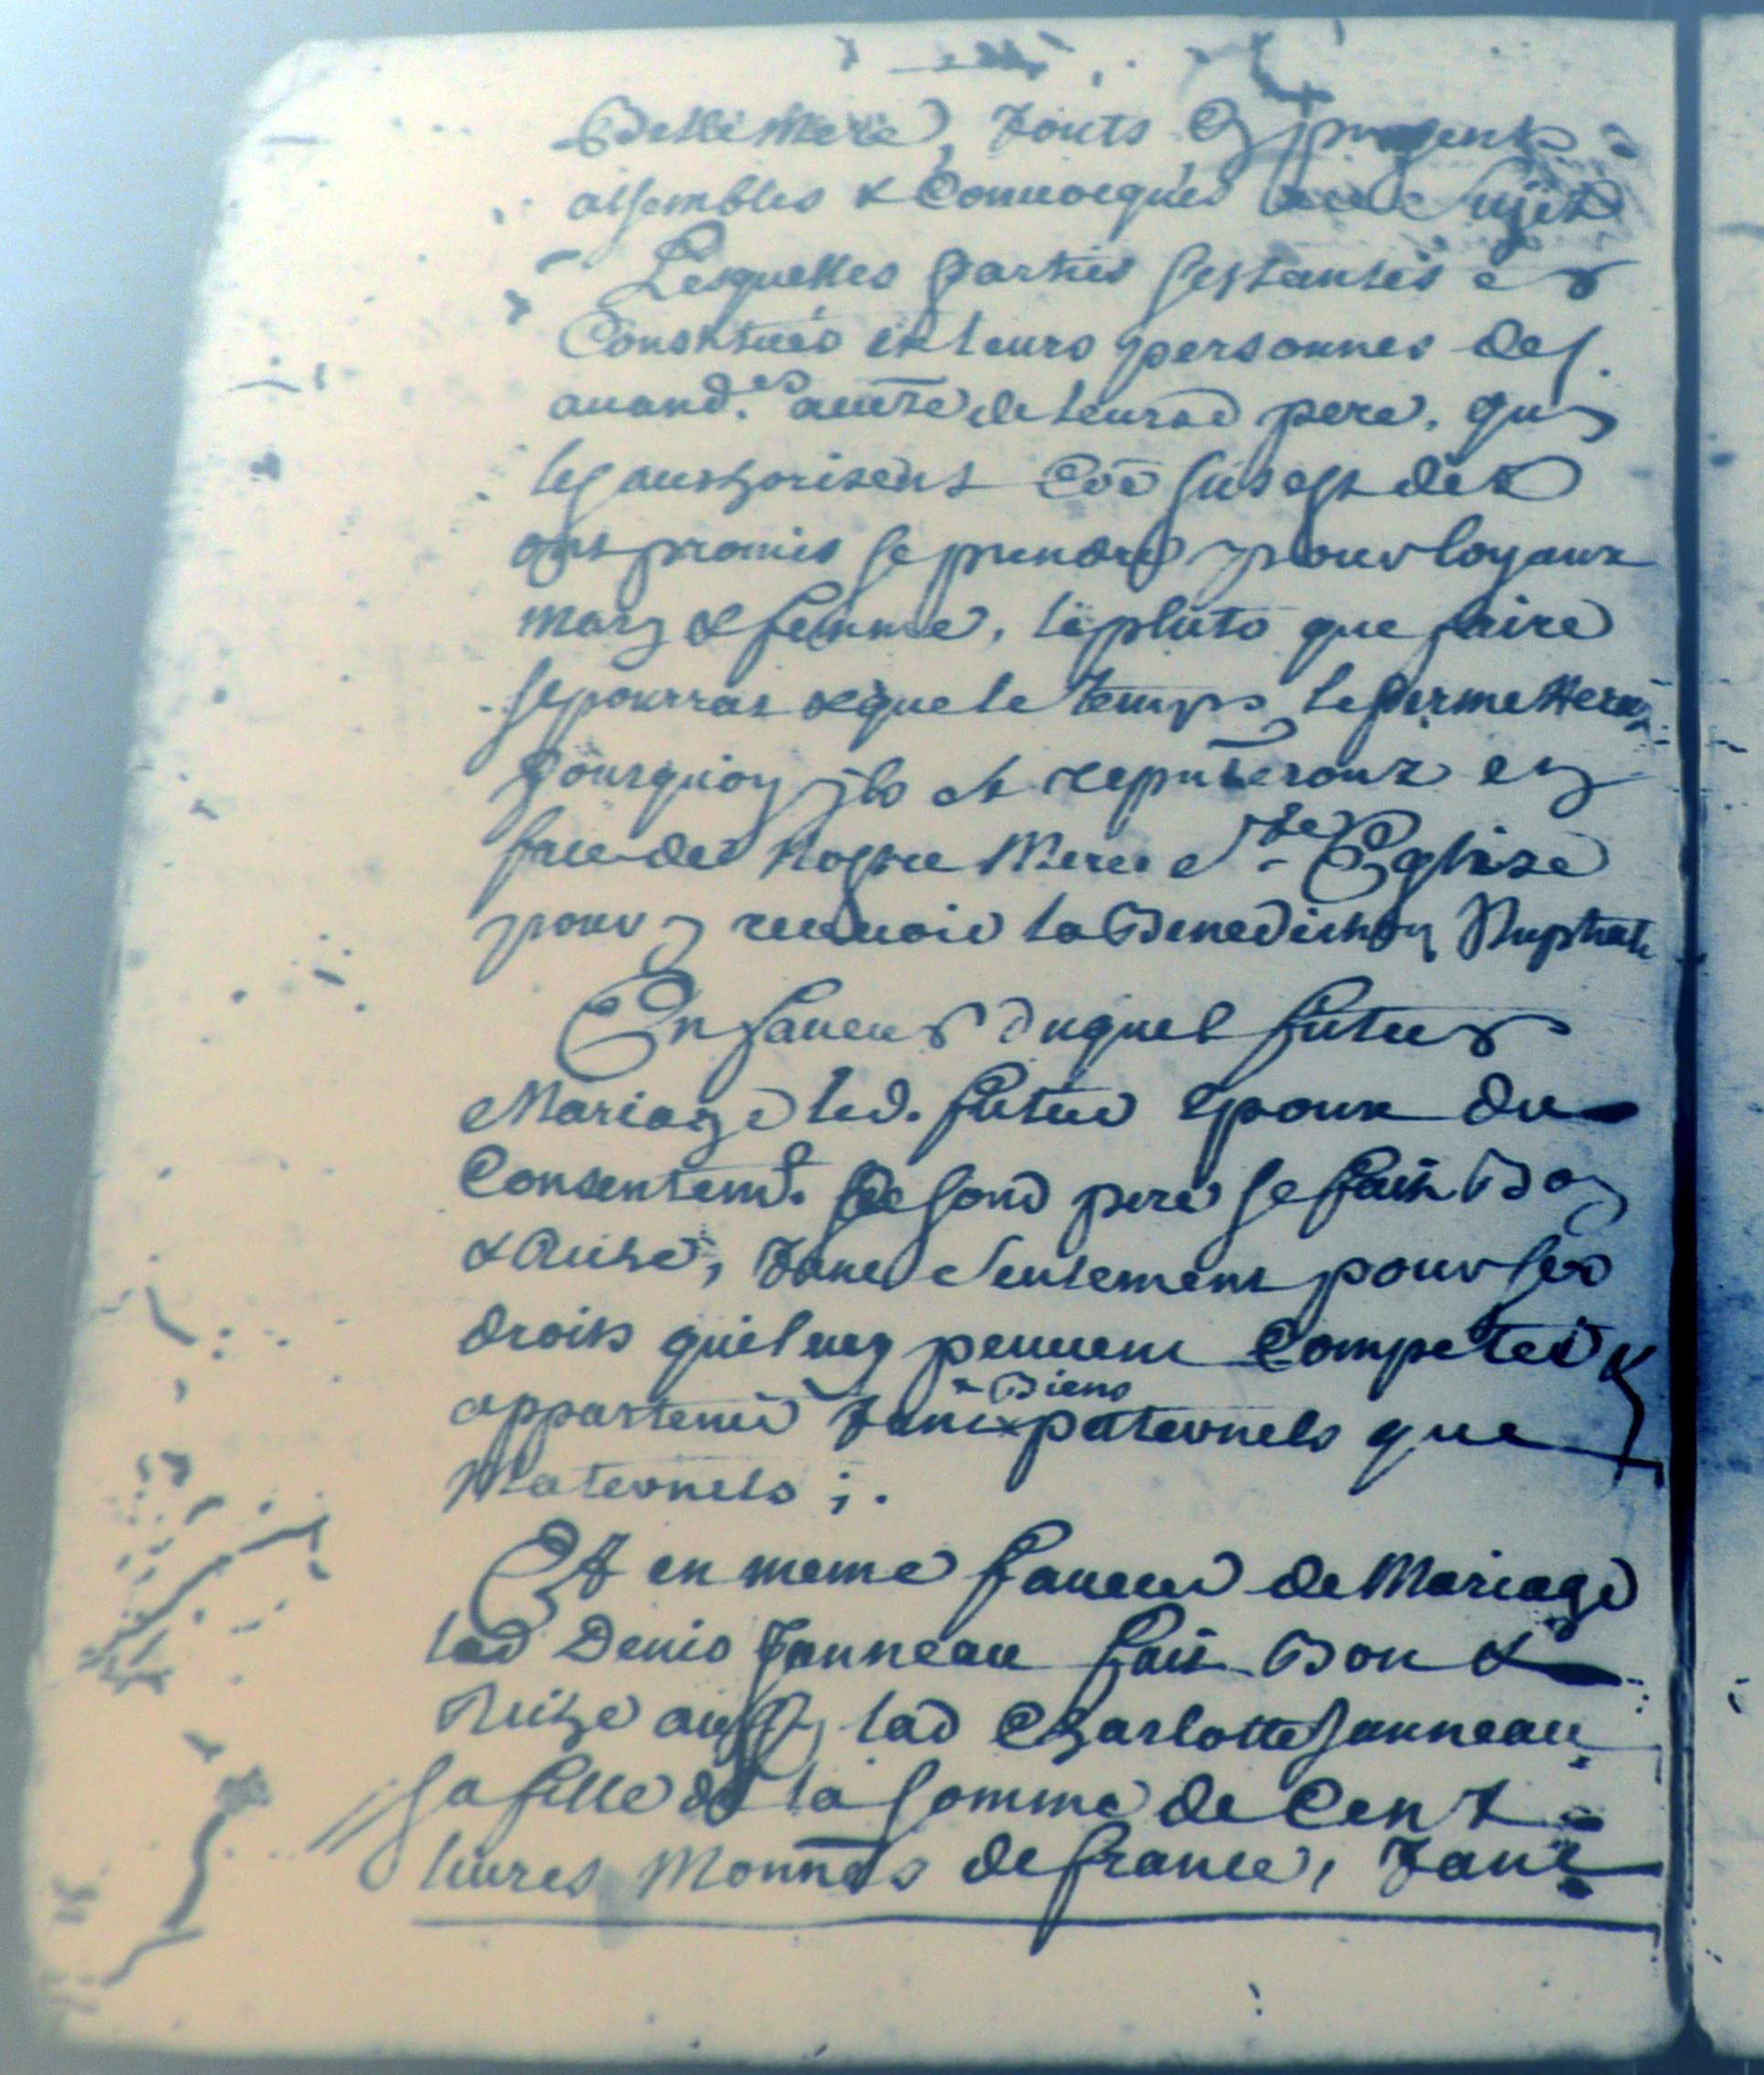 Bellemere, touts Cy presents
assembles & Conuocqués
Lesquelles parties
Constitueés en leurs personnes des
auand.es autté de leursd pere, quy
les authorisent
ont promis se prendre pour loyaux
mary & femme, le plutô que faire
se pourrat & que le temps le permettera
pourquoy ils
face de nostre Mere Ste Eglise
pour y receuoir la Benediction Nuptiale
En faueur duquel futur
Mariage led. futur Epoux du
Consentemt. de sond pere se fait Bon
& Riche, tant Seulement pour les
droits quil luy peuuent Competer &
appartenir tant × paternels que
× Biens
Maternels ;.
Et en meme faueur de Mariage
led Denis Janneau fait Bon &
Riche aussy lad Charlotte Janneau
sa fille de la somme de Cent
liures Monn̄s de france, tant